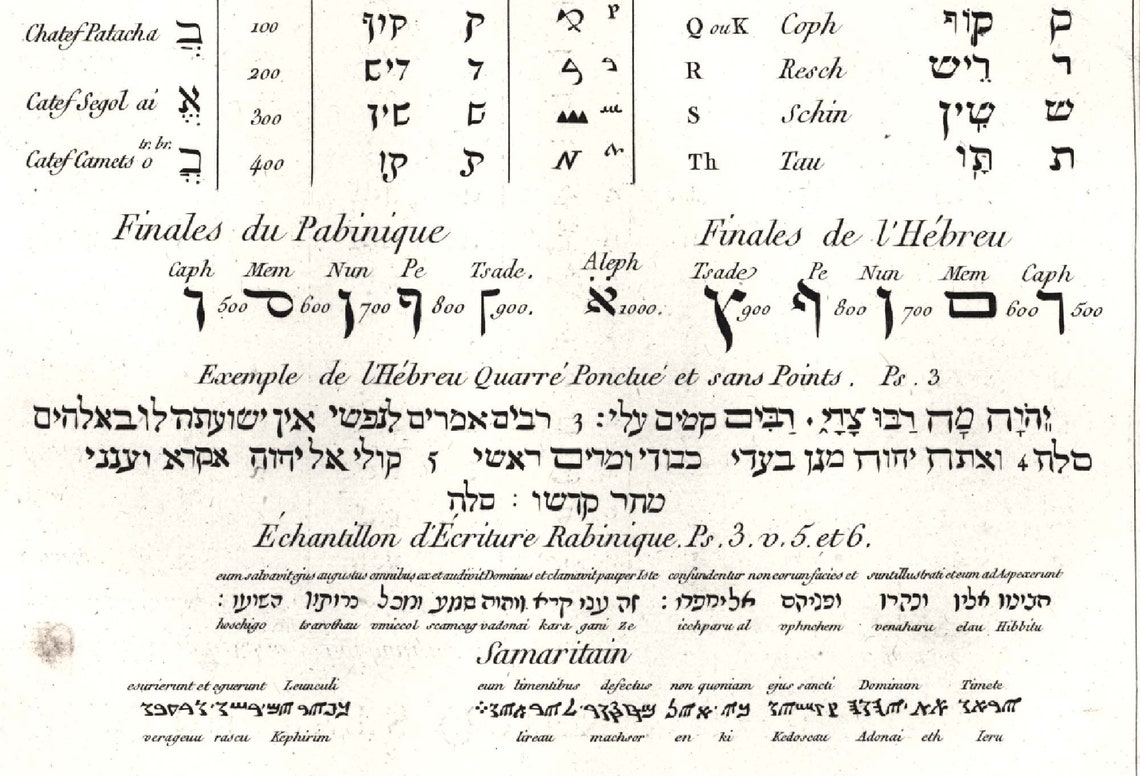 Chatef Patacha בֲ 100 קוף ק Q ou K Coph קוֹף ק
200 ריש ר R Resch רֵיש ר
Catef Segol ai אֱ 300 שין ש S Schin שִׁין ש
Catef Camets o tr. br. בֳ 400 תו ת Th Tau תָּו ת
Finales du Pabinique Finales de l'Hébreu
Caph Mem Nun Pe Tsade. Aleph Tsade Pe Nun Mem Caph
ך 500 ם 600 ן 700 ף 800 ץ 900. א 1000. ץ 900 ף 800 ן 700 ם 600 ך 500
Exemple de l'Hébreu Quarré Ponctué et sans Points. Ps. 3
יְהֹוָה מָה רַבּוּ צָרָי . רַבִּים קמים עלי : 3 רבים אמרים לנפשי אין ישועתה לו באלהים
סלה 4 ואתה יהוה מגן בעדי כבודי ומרים ראשי 5 קולי אל יהוה אקרא ויענני
מהר קדשו : סלה
Échantillon d'Écriture Rabinique. Ps. 3. v. 5. et 6.
eum salvavit ejus augustus omnibus ex et audivit Dominus et clamavit pauper Iste confundentur non eorum facies et sunt illustrati et eum ad Aspexerunt
הביטו אליו ונהרו ופניהם אל יחפרו : זה עני קרא ויהוה שמע ומכל צרותיו הושיעו :
hoschigo tsarothau vmiccol scameag vadonai kara gani Ze iechparu al vphnehem venaharu elau Hibbitu
Samaritain
esurierunt et eguerunt Leunculi eum timentibus defectus non quoniam ejus sancti Dominum Timete
verageuu rascu Kephirim lireau machsor en ki Kedoseau Adonai eth Ieru